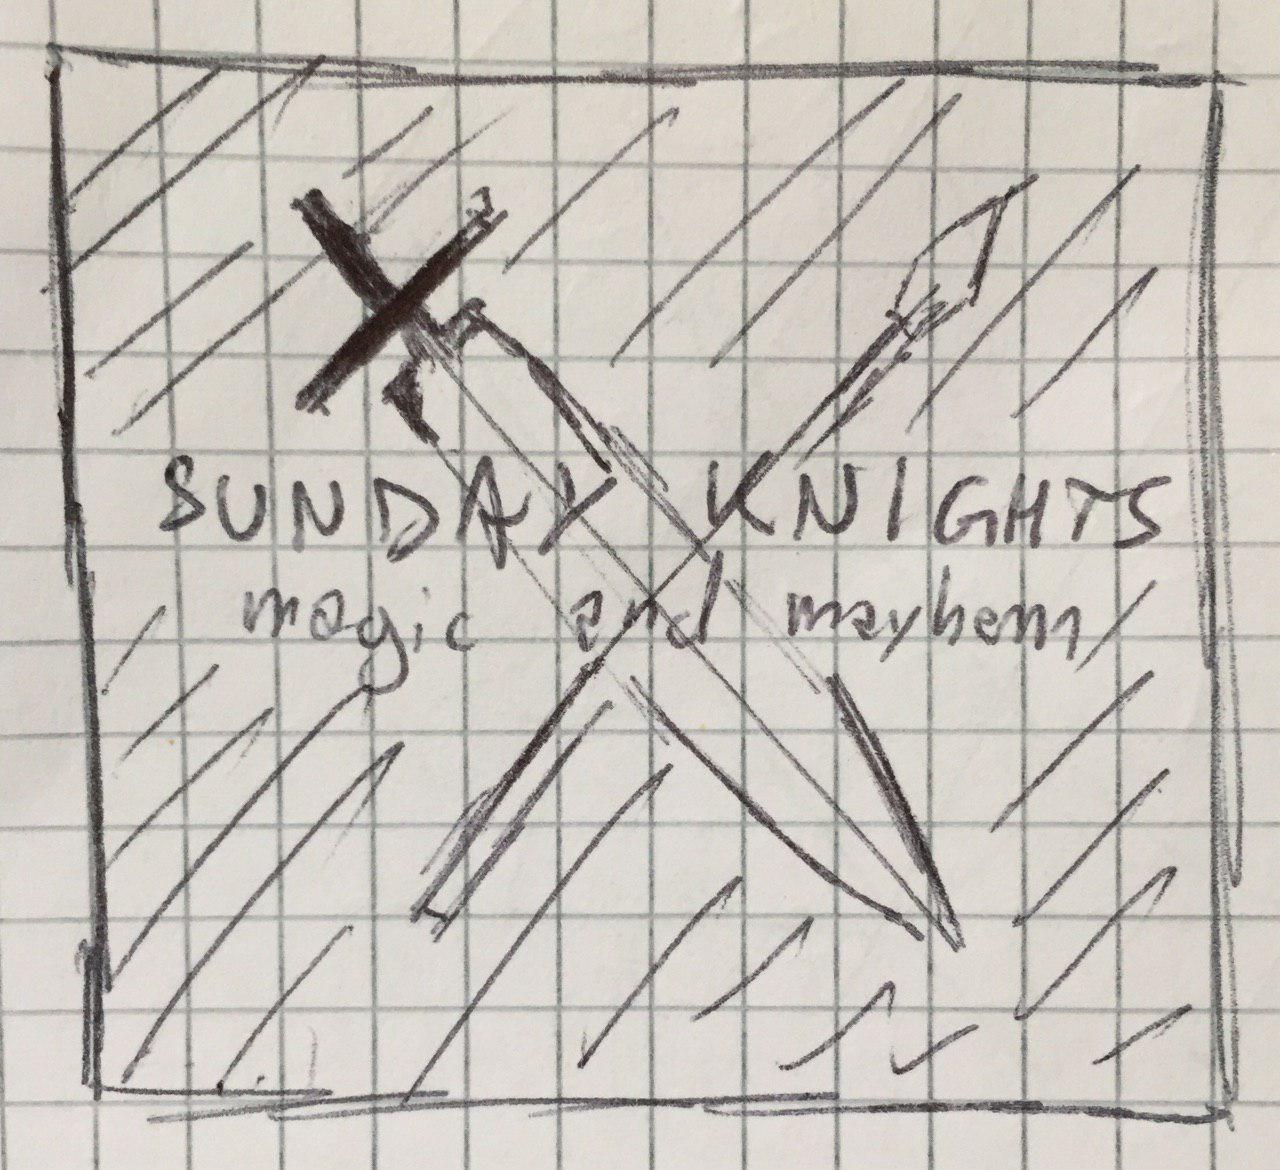 SUNDAY KNIGHTS
magic and mayhem